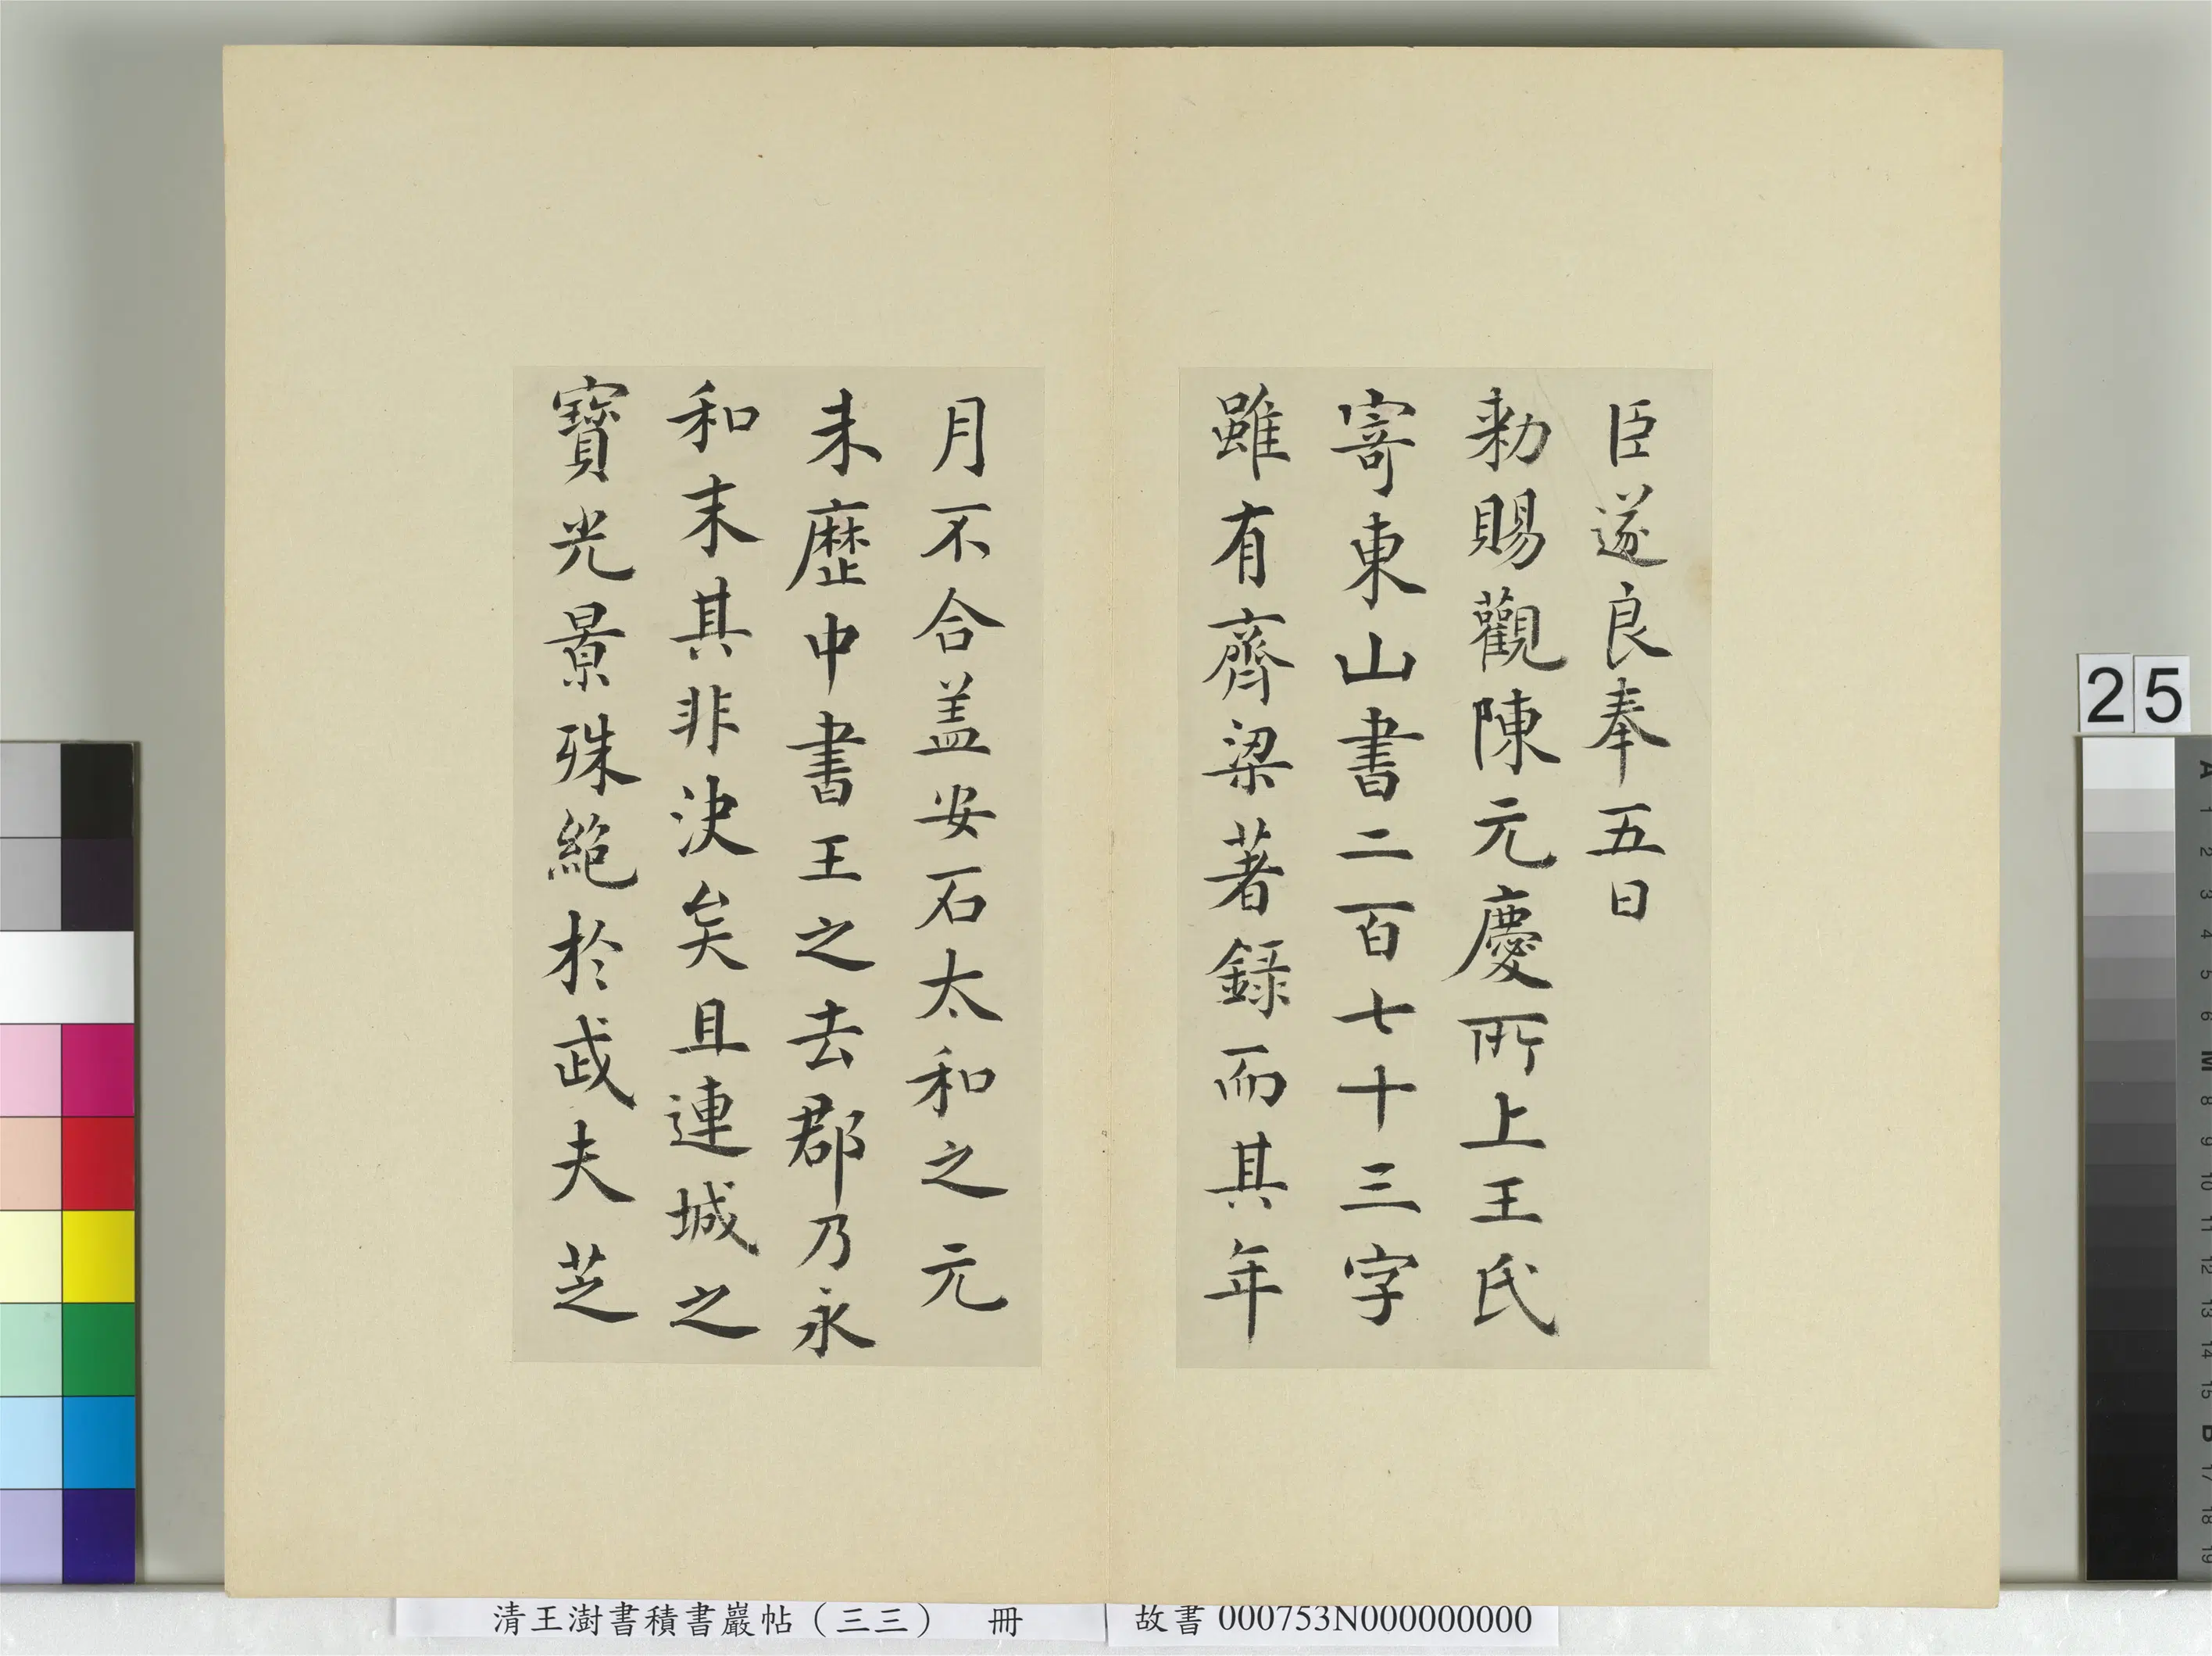 臣遂良奉五日
勑賜觀陳元慶所上王氏
寄東山書二百七十三字
雖有齊梁著錄而其年
月不合盖安石太和之元
未歷中書王之去郡乃永
和末其非决矣且連城之
寶光景殊絕於武夫芝
25
清王澍書積書巖帖（三三） 冊
故書 000753N000000000
A
1
2
3
4
5
6
M
8
9
10
11
12
13
14
15
B
17
18
19